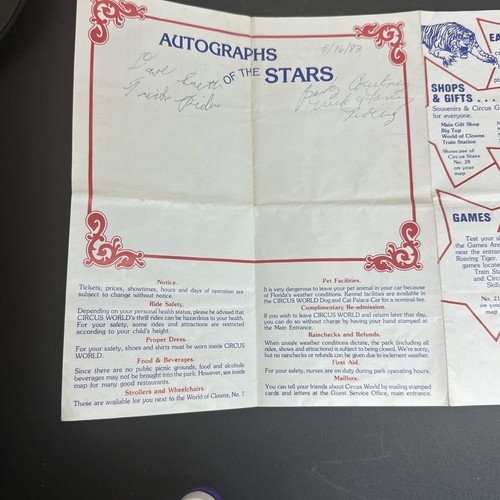 AUTOGRAPHS
OF THE STARS
8/16/83
Dave
Trick
Trick
Riding
Notice.
Tickets, prices, showtimes, hours and days of operation are
subject to change without notice.
Ride Safety.
Depending on your personal health status, please be advised that
CIRCUS WORLD's thrill rides can be hazardous to your health.
For your safety, some rides and attractions are restricted
according to your child's height.
Proper Dress.
For your safety, shoes and shirts must be worn inside CIRCUS
WORLD.
Food & Beverages.
Since there are no public picnic grounds, food and alcoholic
beverages may not be brought into the park. However, see inside
map for many good restaurants.
Strollers and Wheelchairs.
These are available for you next to the World of Clowns, No. 7.
Pet Facilities.
It is very dangerous to leave your pet animal in your car because
of Florida's weather conditions. Kennel facilities are available in
the CIRCUS WORLD Dog and Cat Palace Car for a nominal fee.
Complimentary Re-admission.
If you wish to leave CIRCUS WORLD and return later that day,
you can do so without charge by having your hand stamped at
the Main Entrance.
Rainchecks and Refunds.
When unsafe weather conditions dictate, the park (including all
rides, shows and attractions) is subject to being closed. We're sorry,
but no rainchecks or refunds can be given due to inclement weather.
First Aid.
For your safety, nurses are on duty during park operating hours.
Mailbox.
You can tell your friends about Circus World by mailing stamped
cards and letters at the Guest Service Office, main entrance.
EA
SHOPS
& GIFTS . . .
Souvenirs & Circus G
for everyone.
Main Gift Shop
Big Top
World of Clowns
Train Station
Showcase of
Circus Stars
No. 28
on your
map
GAMES
Test your s
the Games Are
near the entran
Roaring Tiger.
games locate
Train Stat
and Circu
Skill
No. 21
on you
map